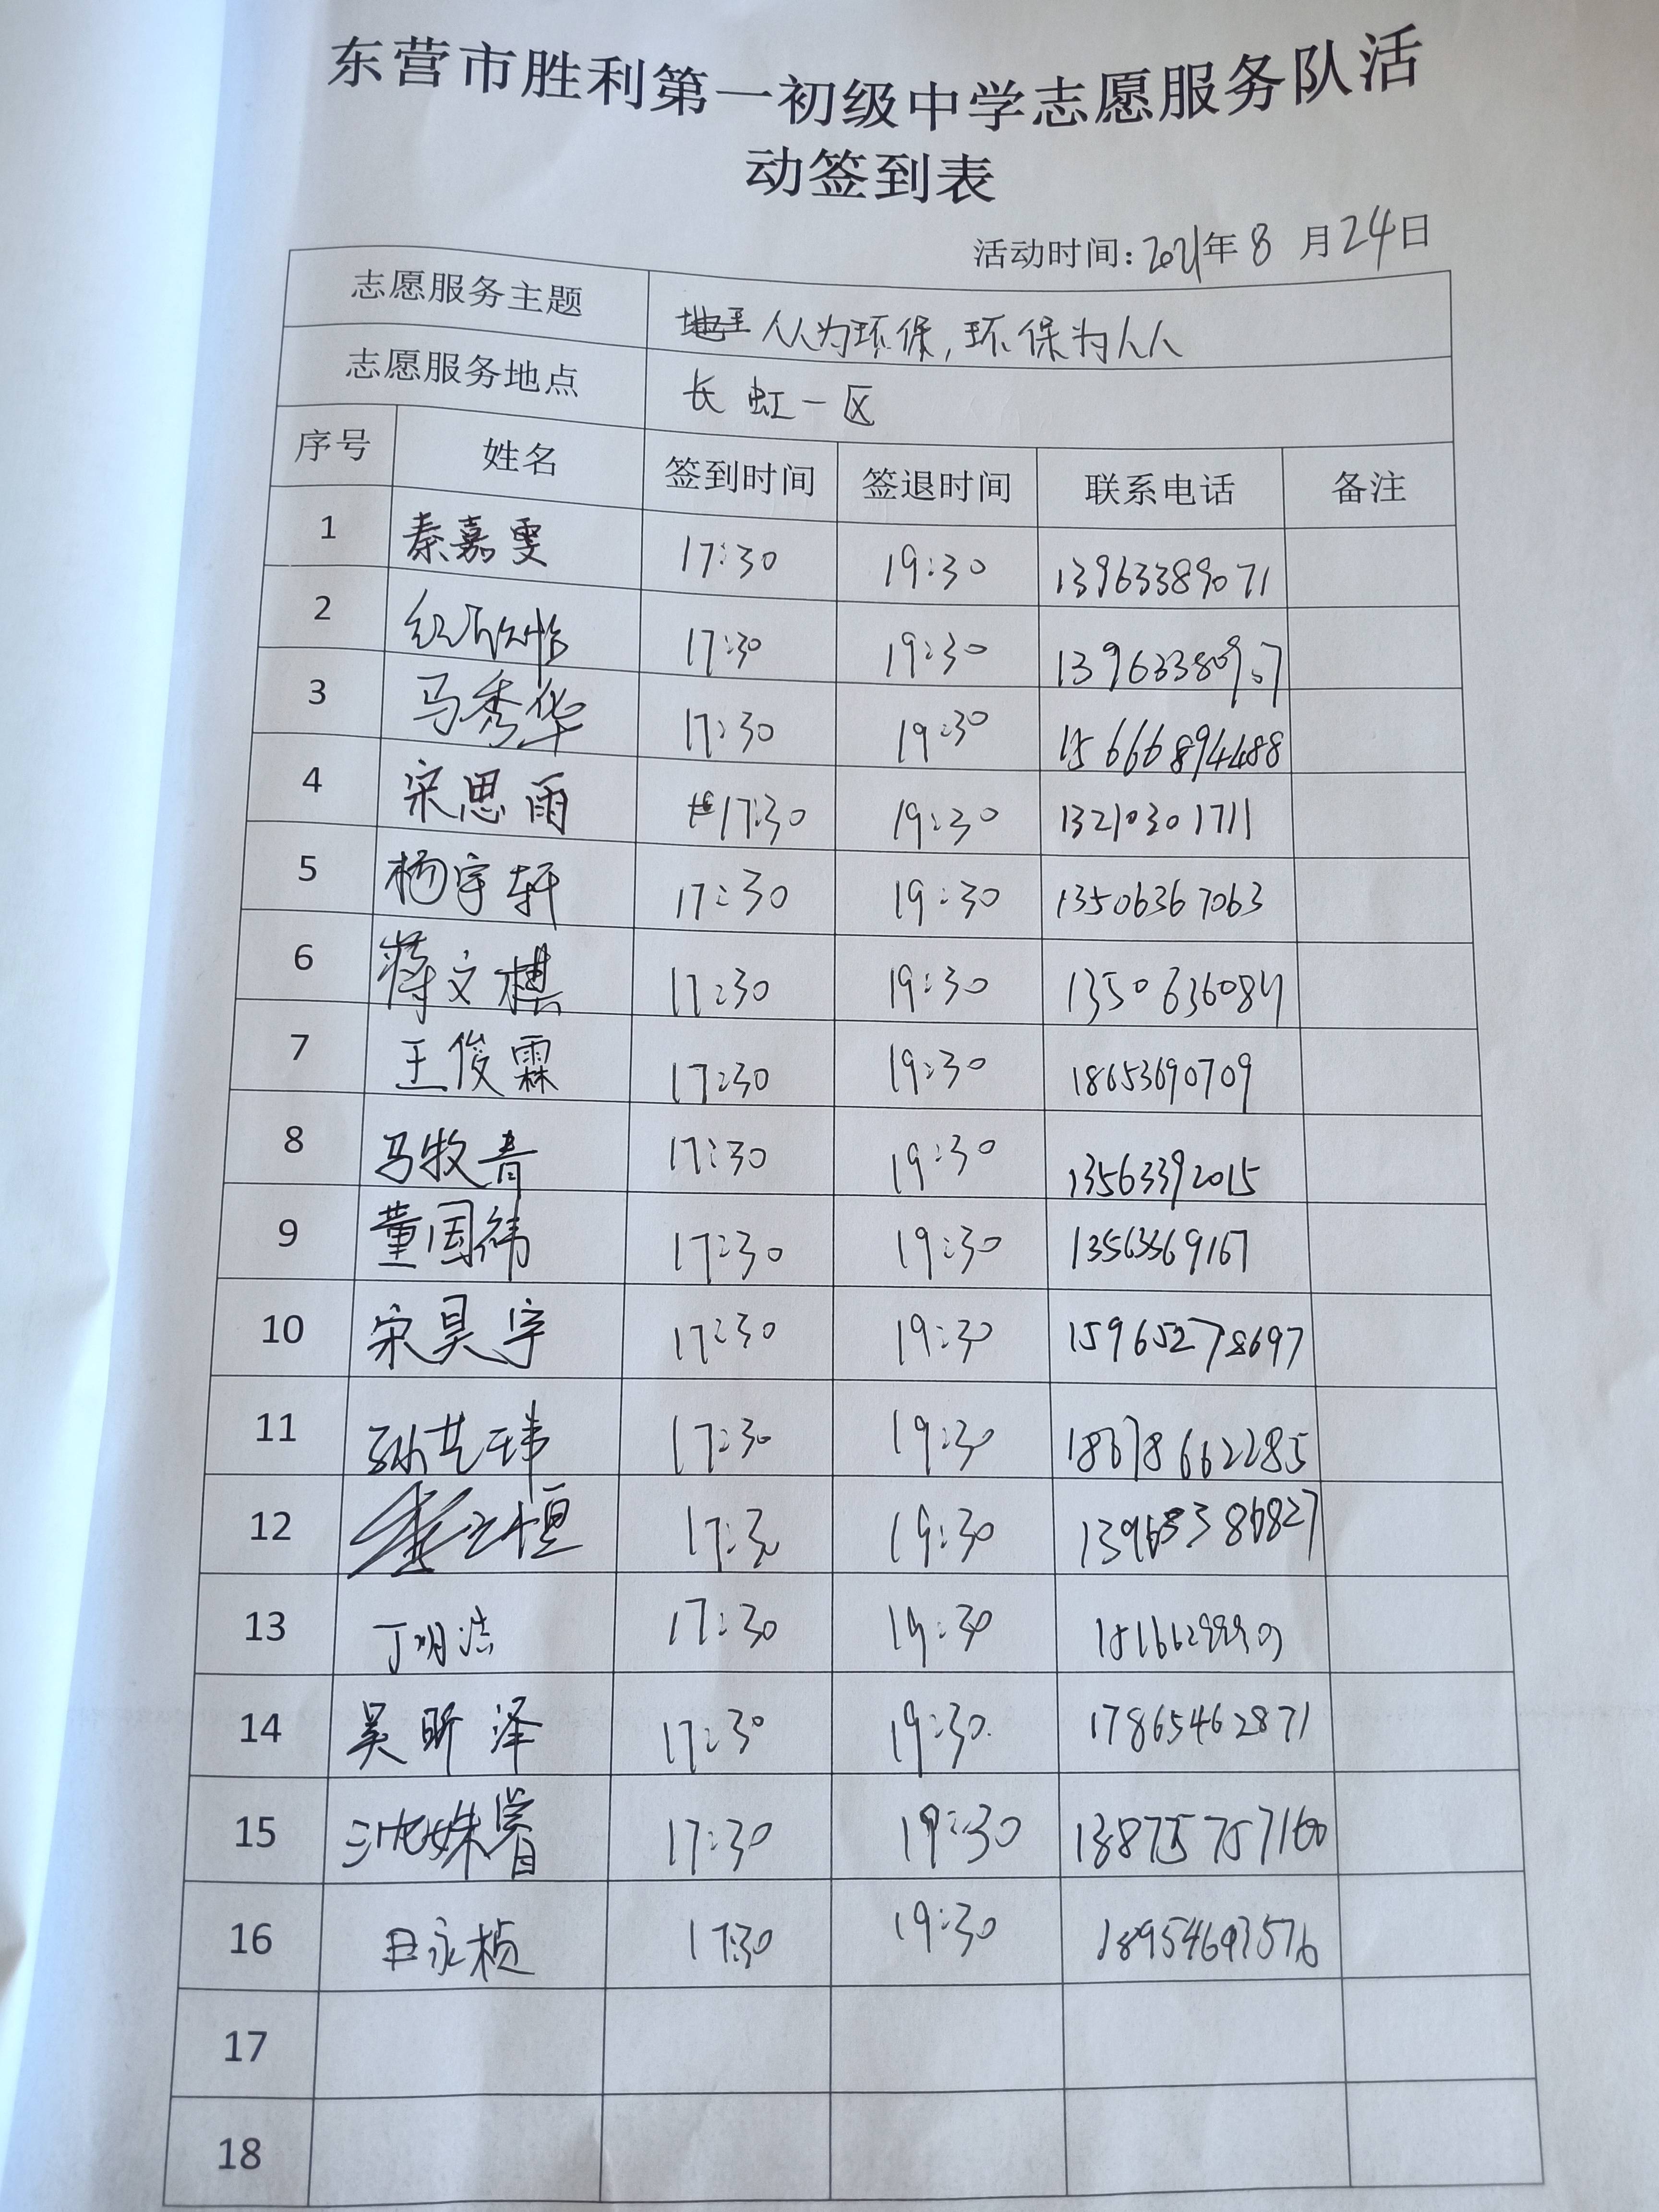 东营市胜利第一初级中学志愿服务队活
动签到表
活动时间：2021年8月24日
志愿服务主题 人人为环保，环保为人人
志愿服务地点 长虹一区
序号 姓名 签到时间 签退时间 联系电话 备注
1 秦嘉雯 17:30 19:30 13963389071
2 17:30 19:30
3 马秀华 17:30 19:30 15666894488
4 宋思雨 17:30 19:30 13210301711
5 杨宇轩 17:30 19:30 13506367063
6 蒋文棋 17:30 19:30
7 王俊霖 17:30 19:30 18653690709
8 马牧青 17:30 19:30 13563392015
9 董国纬 17:30 19:30 13563369167
10 宋昊宇 17:30 19:30 15965278697
11 孙艺玮 17:30 19:30 18678662285
12 17:30 19:30
13 丁明浩 17:30 19:30
14 吴昕泽 17:30 19:30 17865462871
15 17:30 19:30
16 17:30 19:30
17
18